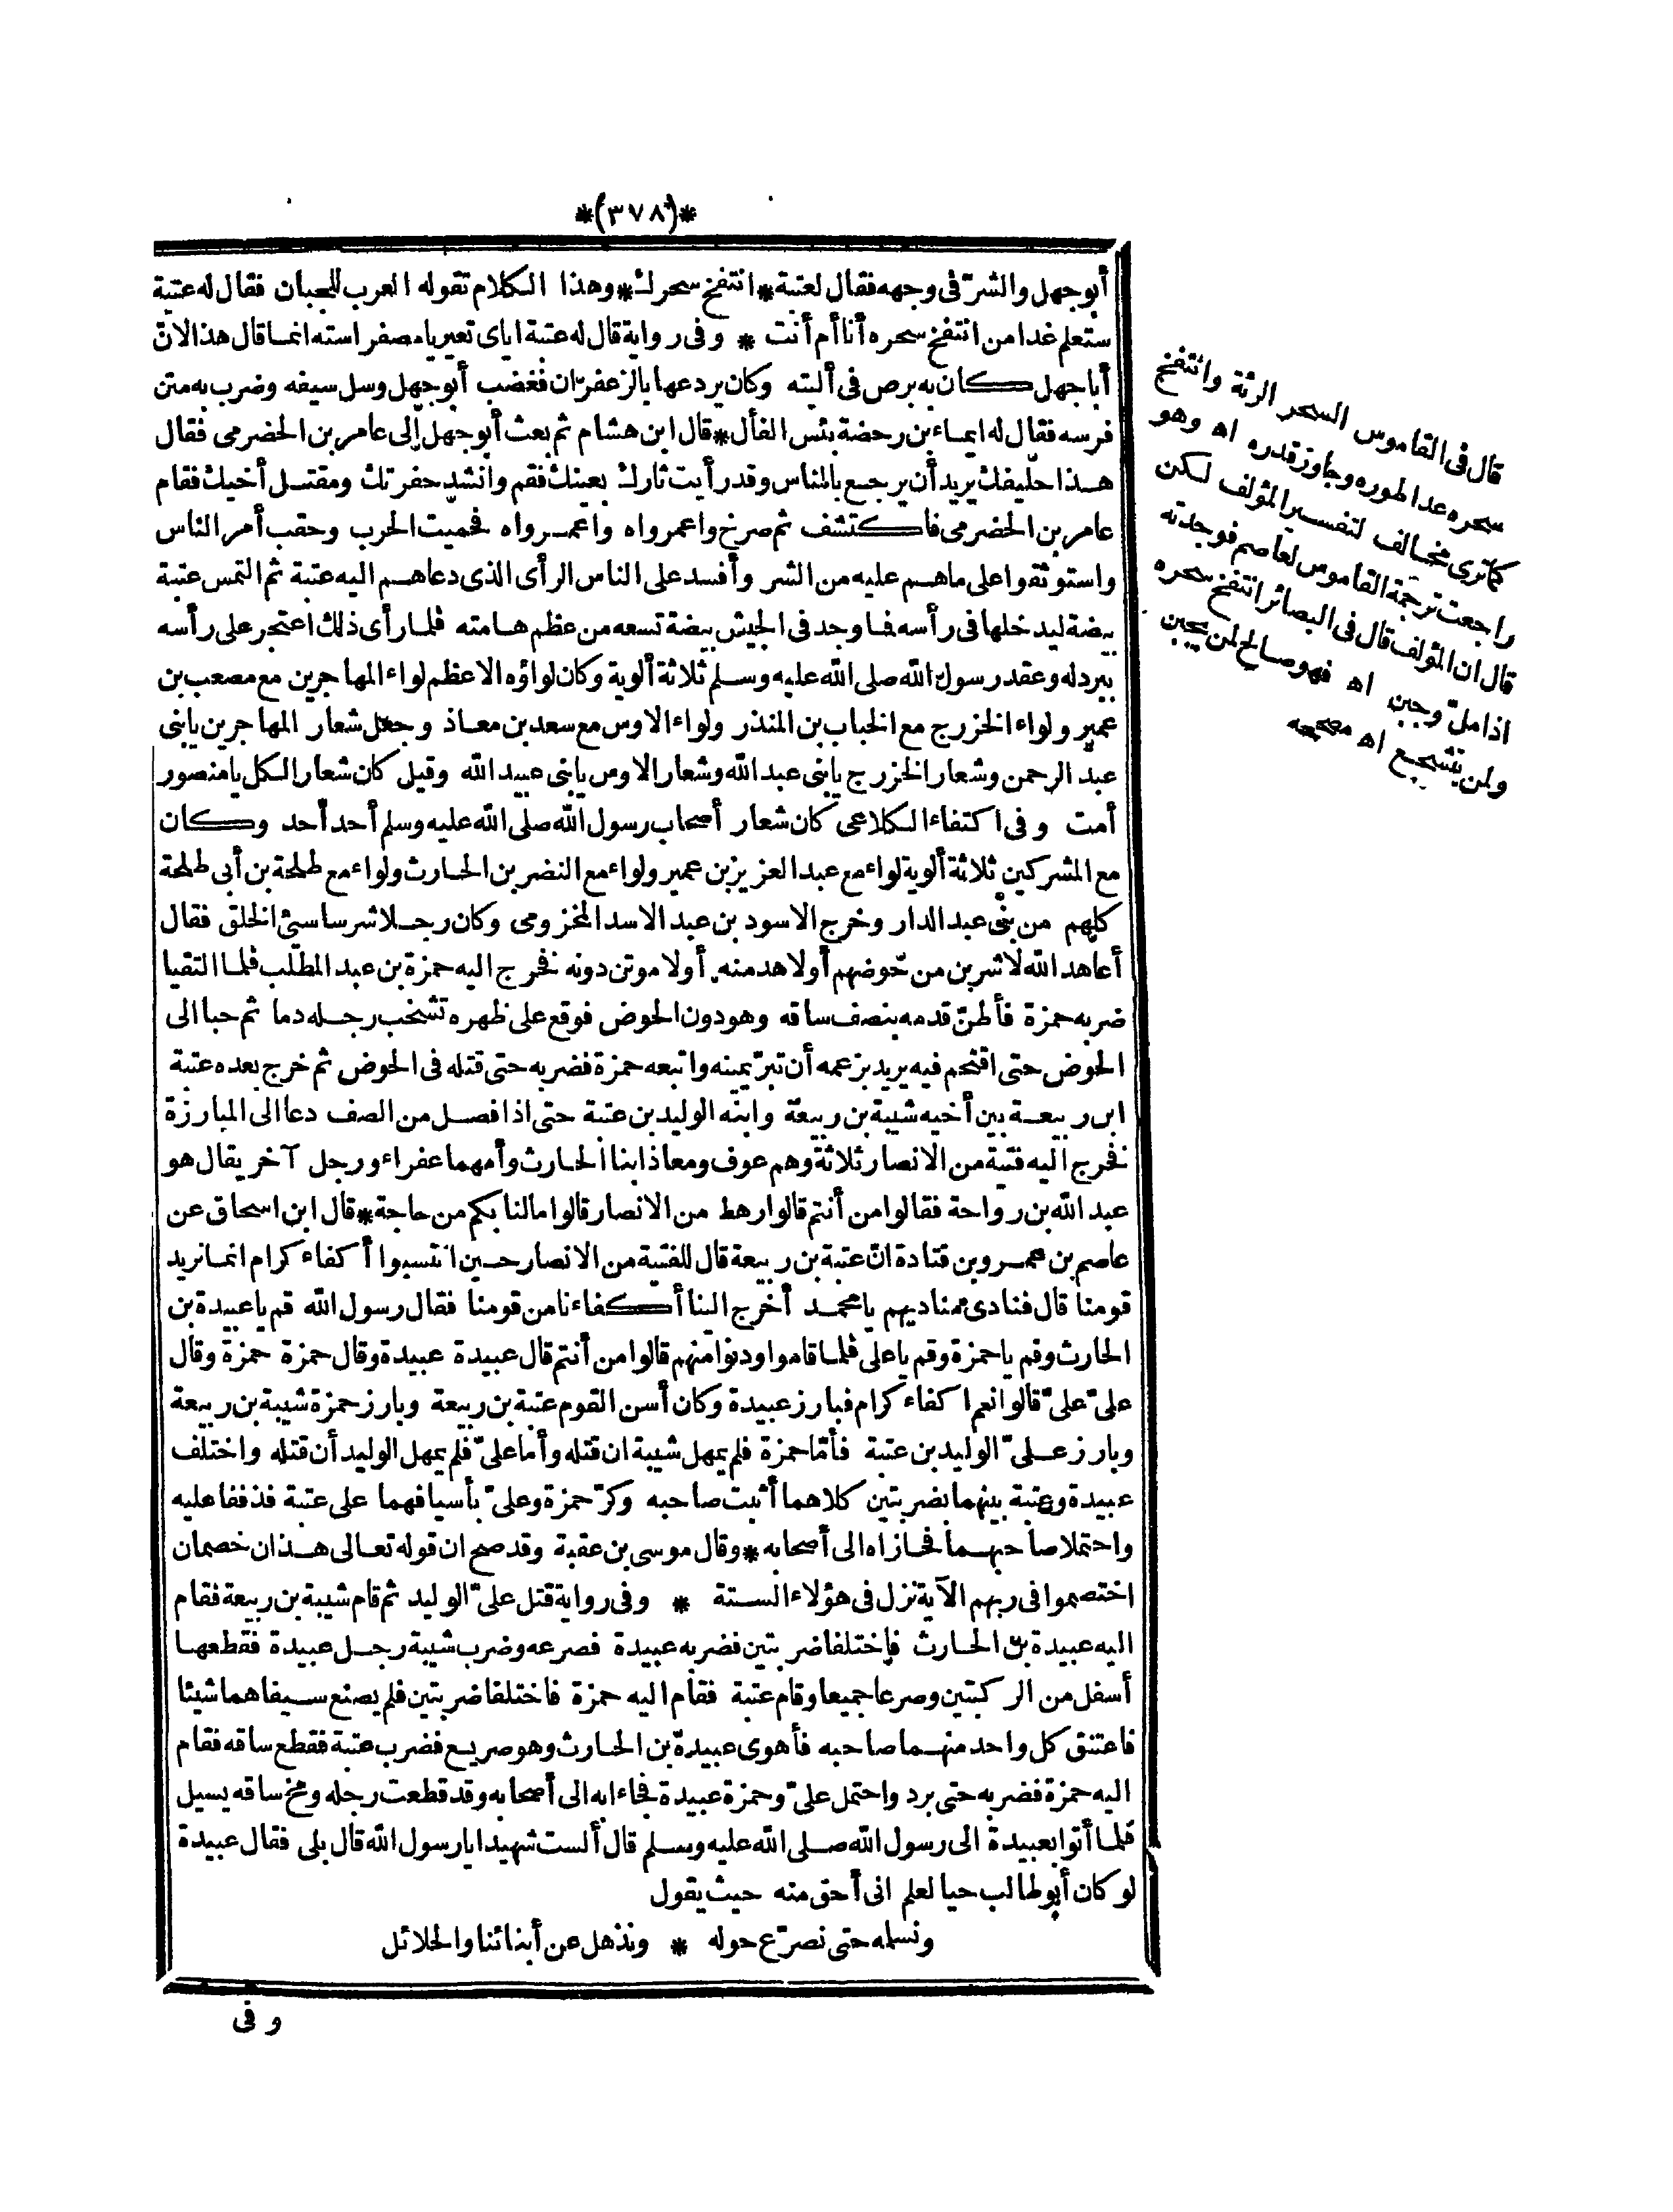 *(٣٧٨)*
أبوجهل والشرّ فى وجهه فقال لعتبة * انتفخ سحرك * وهذا الكلام تقوله العرب للجبان فقال له عتبة
ستعلم غدا من انتفخ سحره أنا أم أنت * وفى رواية قال له عتبة اياى تعير يا مصفر استه انما قال هذا لانّ
أباجهل كان به برص فى أليته وكان يردعها بالزعفران فغضب أبوجهل وسل سيفه وضرب به متن
فرسه فقال له ايماء بن رحضة بئس الفأل * قال ابن هشام ثم بعث أبوجهل إلى عامر بن الحضرمى فقال
هذا حليفك يريد أن يرجع بالناس وقد رأيت ثارك بعينك فقم وانشد حفرتك ومقتل أخيك فقام
عامر بن الحضرمى فاكتشف ثم صرخ واعمرواه واعمرواه فحميت الحرب وحقب أمر الناس
واستوثقوا على ماهم عليه من الشر وأفسد على الناس الرأى الذى دعاهم اليه عتبة ثم التمس عتبة
بيضة ليدخلها فى رأسه فما وجد فى الجيش بيضة تسعه من عظم هامته فلما رأى ذلك اعتجر على رأسه
ببرد له وعقد رسول الله صلى الله عليه وسلم ثلاثة ألوية وكان لواؤه الاعظم لواء المهاجرين مع مصعب بن
عمير ولواء الخزرج مع الحباب بن المنذر ولواء الاوس مع سعد بن معاذ وجعل شعار المهاجرين يابنى
عبد الرحمن وشعار الخزرج يابنى عبد الله وشعار الاوس يابنى عبيد الله وقيل كان شعار الكل يا منصور
أمت وفى اكتفاء الكلاعى كان شعار أصحاب رسول الله صلى الله عليه وسلم أحد أحد وكان
مع المشركين ثلاثة ألوية لواء مع عبد العزيز بن عمير ولواء مع النضر بن الحارث ولواء مع طلحة بن أبى طلحة
كلهم من بنى عبد الدار وخرج الاسود بن عبد الاسد المخزومى وكان رجلا شرسا سيئ الخلق فقال
أعاهد الله لاشربن من حوضهم أولاهدمنه أولاموتن دونه فخرج اليه حمزة بن عبد المطلب فلما التقيا
ضربه حمزة فأطنّ قدمه بنصف ساقه وهو دون الحوض فوقع على ظهره تشخب رجله دما ثم حبا الى
الحوض حتى اقتحم فيه يريد بزعمه أن تبرّ يمينه واتبعه حمزة فضربه حتى قتله فى الحوض ثم خرج بعده عتبة
ابن ربيعة بين أخيه شيبة بن ربيعة وابنه الوليد بن عتبة حتى اذا فصل من الصف دعا الى المبارزة
فخرج اليه فتية من الانصار ثلاثة وهم عوف ومعاذ ابنا الحارث وأمهما عفراء ورجل آخر يقال هو
عبد الله بن رواحة فقالوا من أنتم قالوا رهط من الانصار قالوا مالنا بكم من حاجة * قال ابن اسحاق عن
عاصم بن عمرو بن قتادة انّ عتبة بن ربيعة قال للفتية من الانصار حين انتسبوا أكفاء كرام انما نريد
قومنا قال فنادى مناديهم يا محمد أخرج الينا أكفاءنا من قومنا فقال رسول الله قم يا عبيدة بن
الحارث وقم يا حمزة وقم يا على فلما قاموا ودنوا منهم قالوا من أنتم قال عبيدة عبيدة وقال حمزة حمزة وقال
علىّ علىّ قالوا نعم اكفاء كرام فبارز عبيدة وكان أسن القوم عتبة بن ربيعة وبارز حمزة شيبة بن ربيعة
وبارز علىّ الوليد بن عتبة فأمّا حمزة فلم يمهل شيبة ان قتله وأما علىّ فلم يمهل الوليد أن قتله واختلف
عبيدة وعتبة بينهما بضربتين كلاهما أثبت صاحبه وكرّ حمزة وعلىّ بأسيافهما على عتبة فذففا عليه
واحتملا صاحبهما فحازاه الى أصحابه * وقال موسى بن عقبة وقد صح ان قوله تعالى هذان خصمان
اختصموا فى ربهم الآية نزل فى هؤلاء الستة * وفى رواية قتل علىّ الوليد ثم قام شيبة بن ربيعة فقام
اليه عبيدة بن الحارث فاختلفا ضربتين فضربه عبيدة فصرعه وضرب شيبة رجل عبيدة فقطعها
أسفل من الركبتين وصرعا جميعا وقام عتبة فقام اليه حمزة فاختلفا ضربتين فلم يصنع سيفاهما شيئا
فاعتنق كل واحد منهما صاحبه فأهوى عبيدة بن الحارث وهو صريع فضرب عتبة فقطع ساقه فقام
اليه حمزة فضربه حتى برد واحتمل علىّ وحمزة عبيدة فجاءا به الى أصحابه وقد قطعت رجله ومخ ساقه يسيل
فلما أتوا بعبيدة الى رسول الله صلى الله عليه وسلم قال ألست شهيدا يا رسول الله قال بلى فقال عبيدة
لو كان أبوطالب حيا لعلم انى أحق منه حيث يقول
ونسلمه حتى نصرّع حوله * ونذهل عن أبنائنا والحلائل
وفى
قال فى القاموس السحر الرئة وانتفخ
سحره عدا طوره وجاوز قدره اه وهو
كما ترى مخالف لتفسير المؤلف لكن
راجعت ترجمة القاموس لعاصم فوجدته
قال ان المؤلف قال فى البصائر انتفخ سحره
اذا ملّ وجبن اه فهو صالح لمن يجبن
ولمن يتشجع اه مصححه